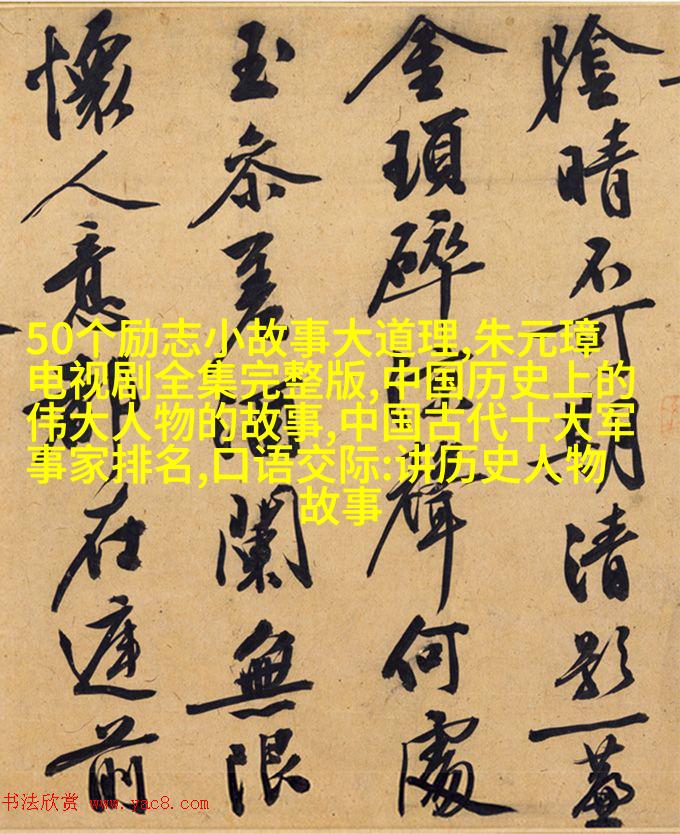 陰晴不可期清影一
金瑣碎聲何處
玉参差闌無限
懷人意都在前
50个励志小故事大道理,朱元璋
电视剧全集完整版,中国历史上的
伟大人物的故事,中国古代十大军
事家排名,口语交际:讲历史人物
故事
书法欣赏 www.yac8.com